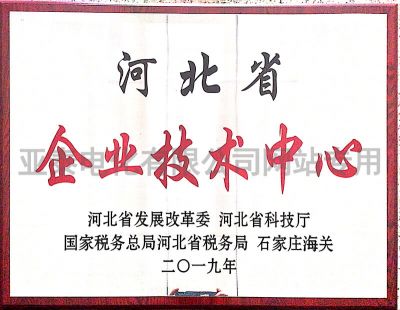 河北省
企业技术中心
河北省发展改革委 河北省科技厅
国家税务总局河北省税务局 石家庄海关
二〇一九年